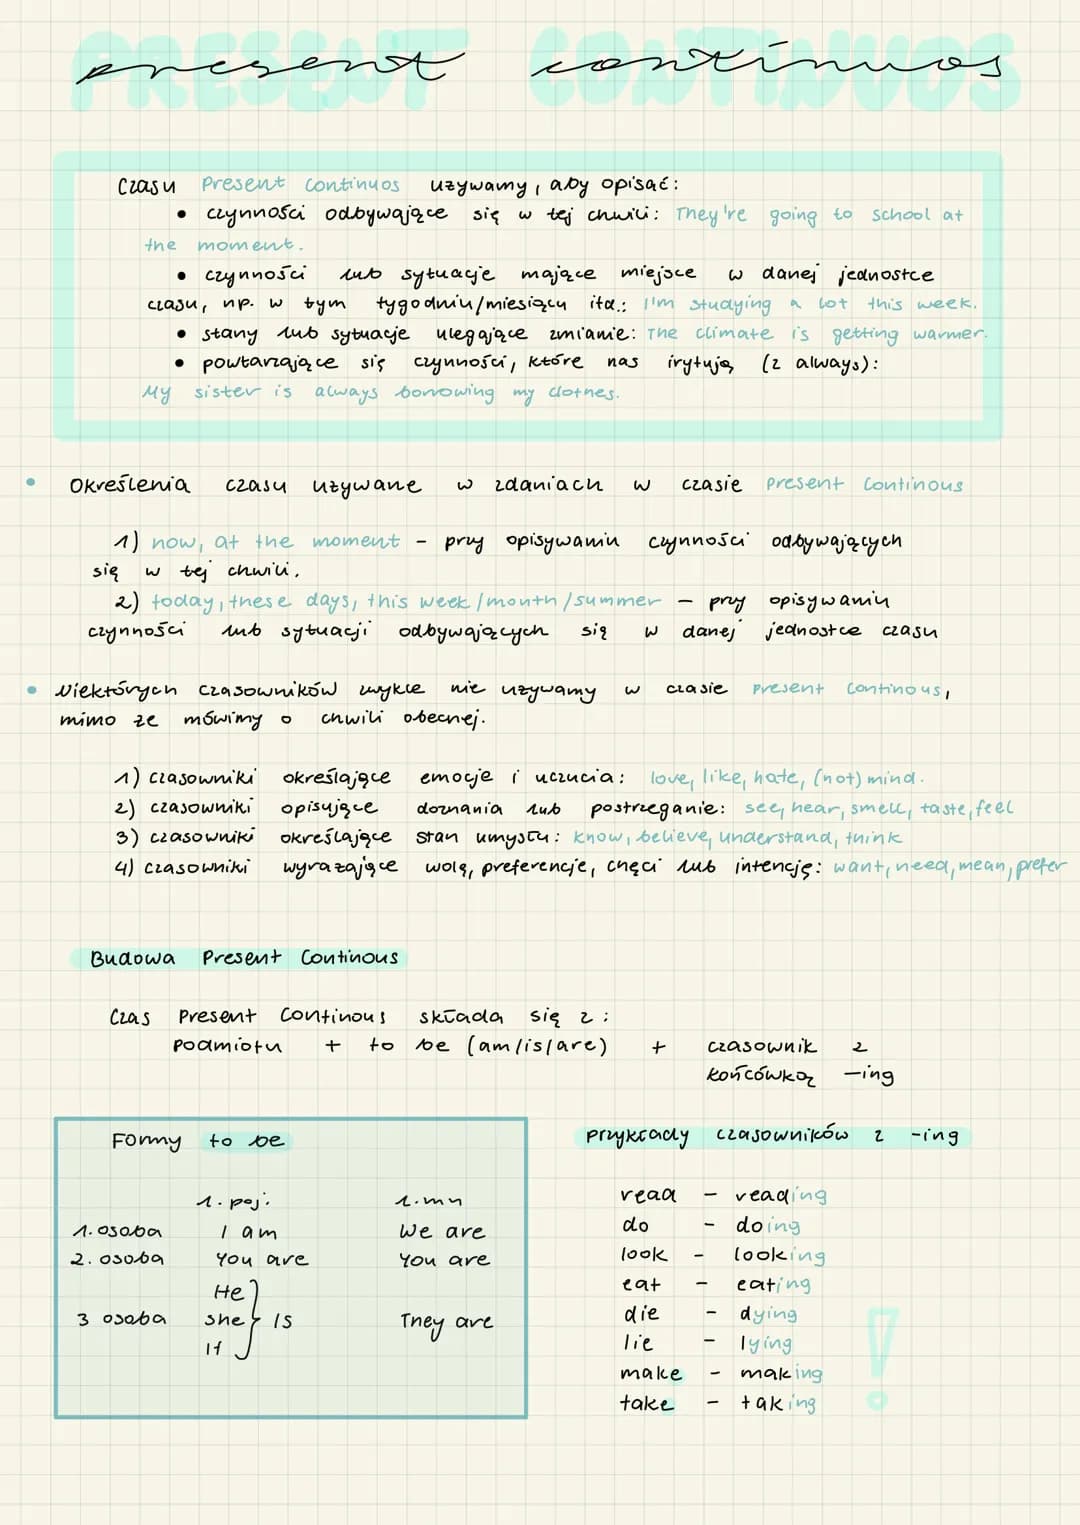 PRESENT CONTINUOS
present continuos
Czasu Present Continuos używamy, aby opisać:
• czynności odbywające się w tej chwili: They're going to school at
the moment.
• czynności lub sytuacje mające miejsce w danej jednostce
czasu, np. w tym tygodniu/miesiącu itd.: I'm studying a lot this week.
• stany lub sytuacje ulegające zmianie: The climate is getting warmer.
• powtarzające się czynności, które nas irytują (z always):
My sister is always borrowing my clothes.
• Określenia czasu używane w zdaniach w czasie Present Continous
1) now, at the moment - przy opisywaniu czynności odbywających
się w tej chwili.
2) today, these days, this week/month/summer - przy opisywaniu
czynności lub sytuacji odbywających się w danej jednostce czasu
• Niektórych czasowników zwykle nie używamy w czasie Present Continous,
mimo że mówimy o chwili obecnej.
1) czasowniki określające emocje i uczucia: love, like, hate, (not) mind.
2) czasowniki opisujące doznania lub postrzeganie: see, hear, smell, taste, feel
3) czasowniki określające stan umysłu: know, believe, understand, think
4) czasowniki wyrażające wolę, preferencje, chęci lub intencję: want, need, mean, prefer
Budowa Present Continous
Czas Present Continous składa się z:
Podmiotu + to be (am/is/are) + czasownik z
końcówką -ing
Formy to be
l. poj. l. mn
1. osoba I am We are
2. osoba You are You are
He
3 osoba she } is They are
It
Przykłady czasowników z -ing
read - reading
do - doing
look - looking
eat - eating
die - dying
lie - lying
make - making
take - taking
!